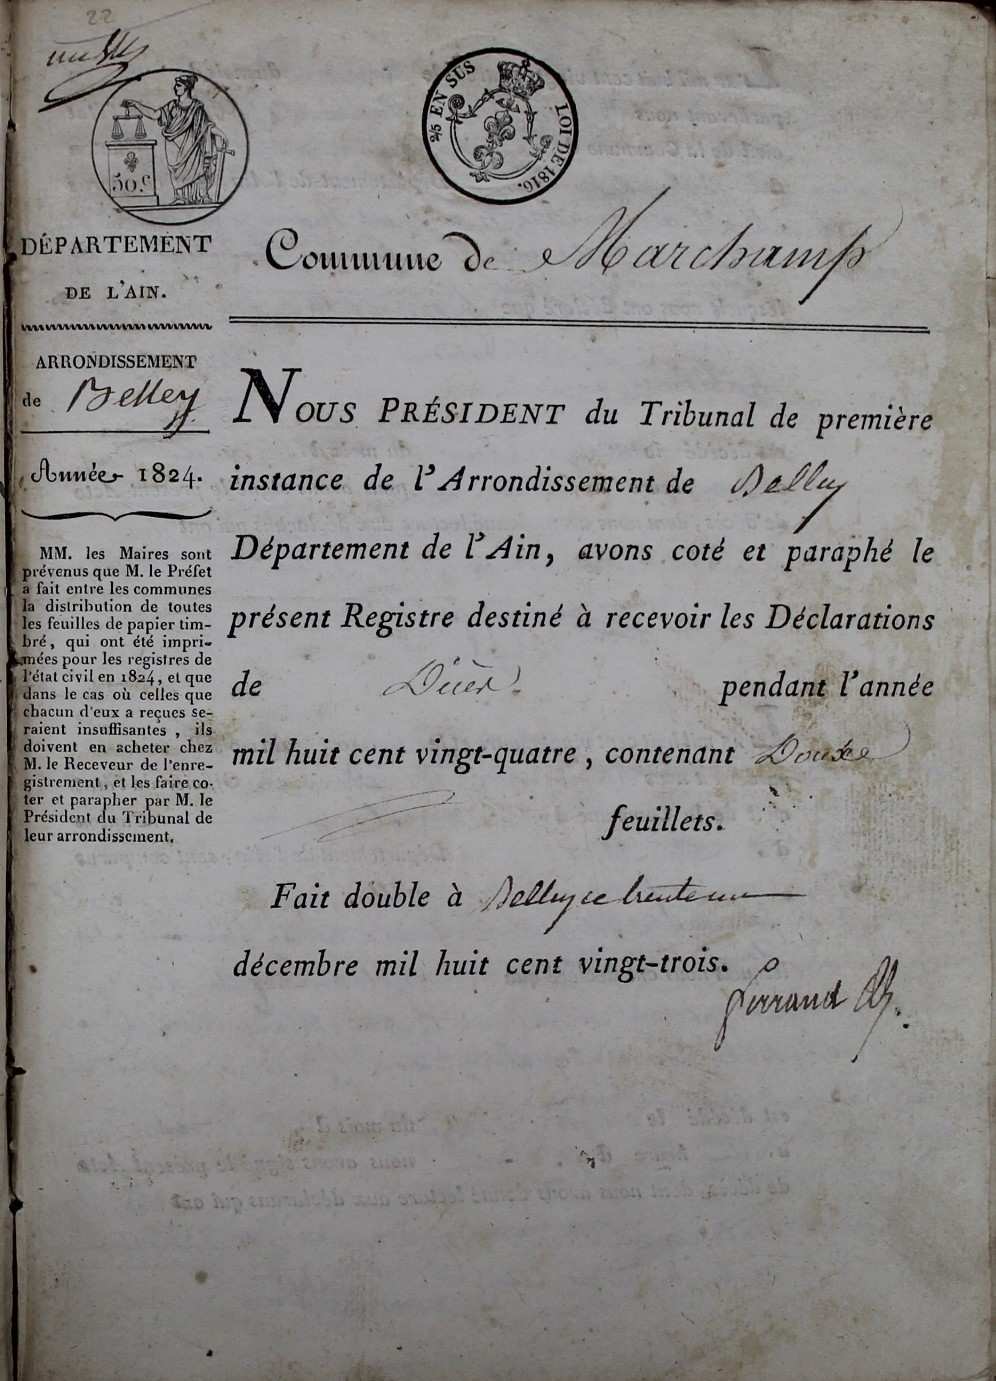 22
50.c
2/5 EN SUS
LOI DE 1816.
DÉPARTEMENT
DE L'AIN.
ARRONDISSEMENT
de Belley
Année 1824.
MM. les Maires sont
prévenus que M. le Préfet
a fait entre les communes
la distribution de toutes
les feuilles de papier tim-
bré, qui ont été impri-
mées pour les registres de
l'état civil en 1824, et que
dans le cas où celles que
chacun d'eux a reçues se-
raient insuffisantes, ils
doivent en acheter chez
M. le Receveur de l'enre-
gistrement, et les faire co-
ter et parapher par M. le
Président du Tribunal de
leur arrondissement.
Commune de Marchamp
NOUS PRÉSIDENT du Tribunal de première
instance de l'Arrondissement de Belley
Département de l'Ain, avons coté et paraphé le
présent Registre destiné à recevoir les Déclarations
de Décès pendant l'année
mil huit cent vingt-quatre, contenant Douze
feuillets.
Fait double à Belley ce trente un
décembre mil huit cent vingt-trois.
Ferrand